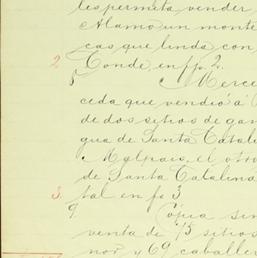 les permita vender
Alamo un monte
cas que linda con
2. Conde en fp 2.
8 Merce
ceda que vendió á
de dos sitios de gan
gua de Santa Catal
Malpais, el otro
de Santa Catalina
3. tal en fo 3
9 Copia sim
venta de 15 sitios
nor y 69 caballe